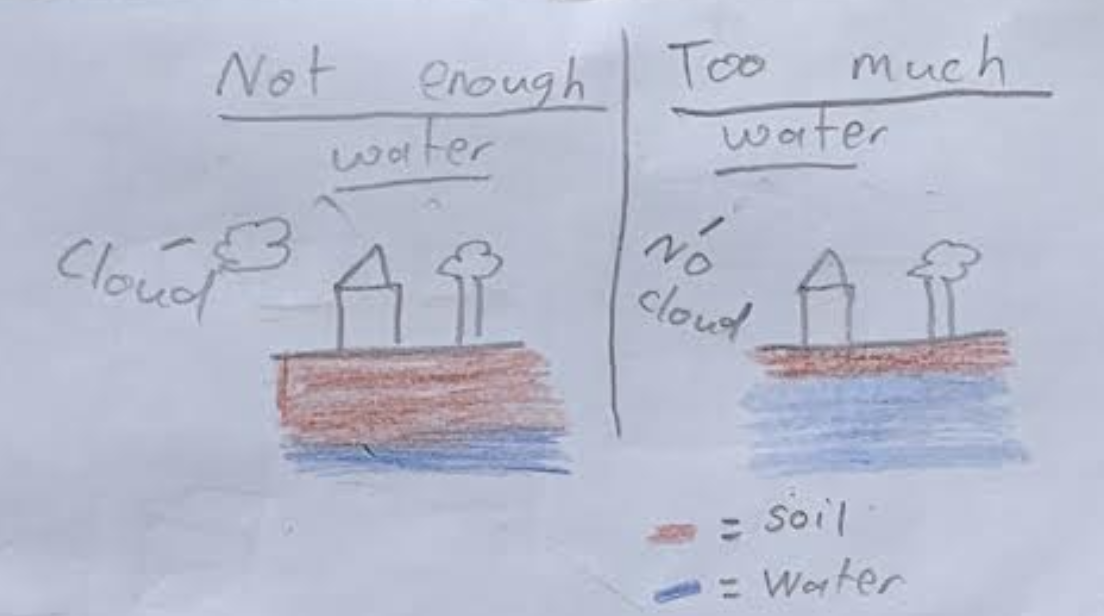 Not enough
water
Cloud
Too much
water
No
cloud
= soil
= water